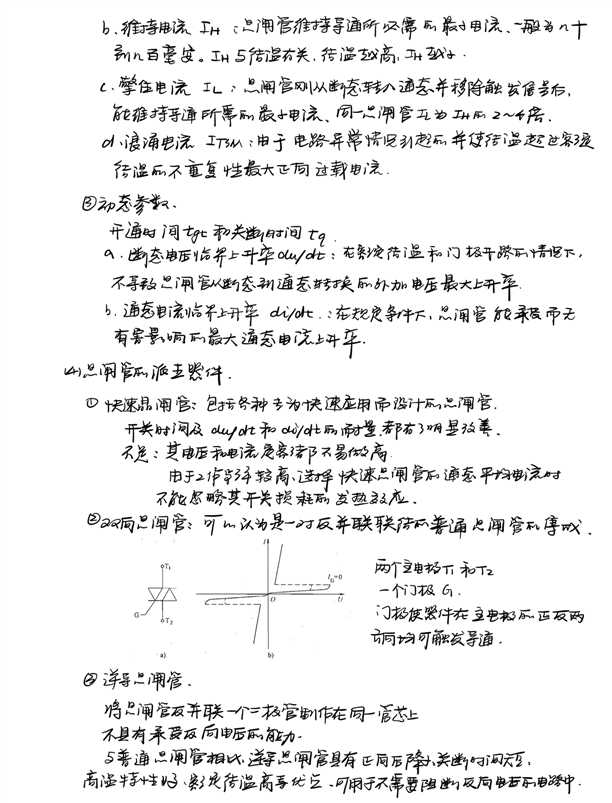 b. 维持电流 IH：晶闸管维持导通所必需的最小电流、一般为几十
到几百毫安。IH与结温有关，结温越高，IH越小.
c. 擎住电流 IL：晶闸管刚从断态转入通态并移除触发信号后，
能维持导通所需的最小电流、同一晶闸管IL为IH的2~4倍.
d. 浪涌电流 ITSM：由于电路异常情况引起的并使结温超过额定
结温的不重复性最大正向过载电流.
③动态参数.
开通时间tgt和关断时间tq.
a. 断态电压临界上升率du/dt：在额定结温和门极开路的情况下，
不导致晶闸管从断态到通态转换的外加电压最大上升率.
b. 通态电流临界上升率 di/dt：在规定条件下，晶闸管能承受而无
有害影响的最大通态电流上升率.
(4)晶闸管的派生器件.
① 快速晶闸管：包括各种专为快速应用而设计的晶闸管.
开关时间及du/dt和di/dt的耐量都有了明显改善.
不足：其电压和电流定额都不易做高.
由于工作频率较高，选择快速晶闸管的通态平均电流时
不能忽略其开关损耗的发热效应.
②双向晶闸管：可以认为是一对反并联联结的普通晶闸管的集成.
T1
G
T2
a)
I
IG=0
O
U
b)
两个主电极T1和T2
一个门极 G.
门极使器件在主电极的正反两
方向均可触发导通.
③ 逆导晶闸管.
将晶闸管反并联一个二极管制作在同一管芯上
不具有承受反向电压的能力.
与普通晶闸管相比，逆导晶闸管具有正向压降小、关断时间短、
高温特性好、额定结温高等优点、可用于不需要阻断反向电压的电路中.